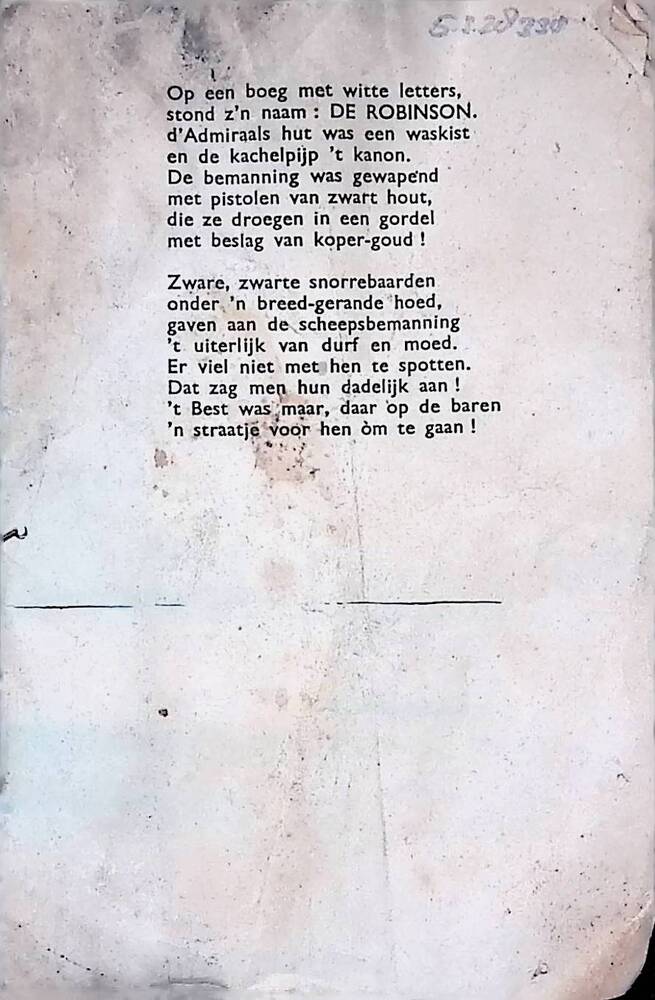 Op een boeg met witte letters,
stond z'n naam : DE ROBINSON.
d'Admiraals hut was een waskist
en de kachelpijp 't kanon.
De bemanning was gewapend
met pistolen van zwart hout,
die ze droegen in een gordel
met beslag van koper-goud !
Zware, zwarte snorrebaarden
onder 'n breed-gerande hoed,
gaven aan de scheepsbemanning
't uiterlijk van durf en moed.
Er viel niet met hen te spotten.
Dat zag men hun dadelijk aan !
't Best was maar, daar op de baren
'n straatje voor hen òm te gaan !